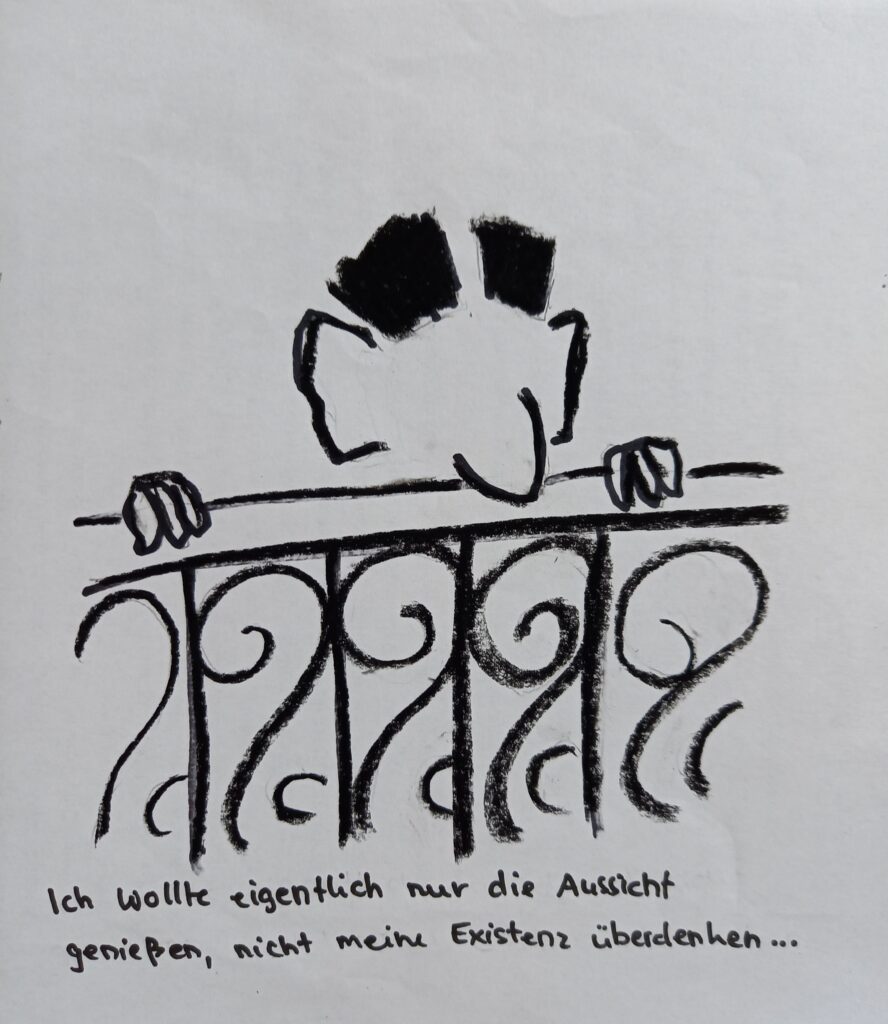 Ich wollte eigentlich nur die Aussicht
genießen, nicht meine Existenz überdenken...